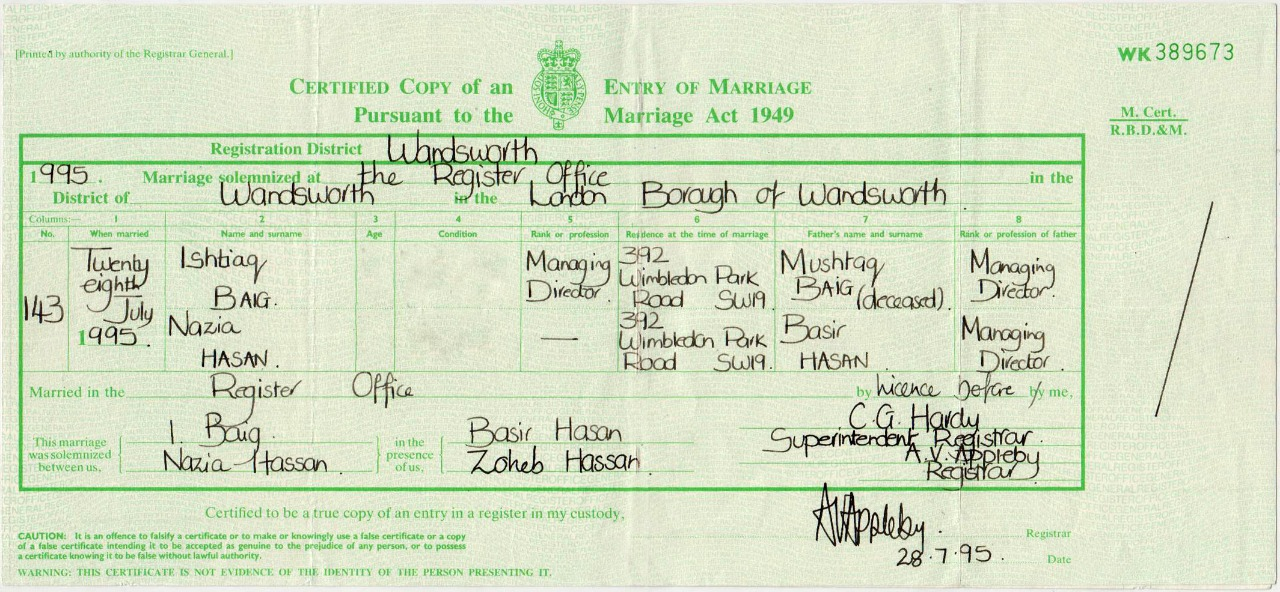 [Printed by authority of the Registrar General.]
WK 389673
CERTIFIED COPY of an ENTRY OF MARRIAGE
Pursuant to the Marriage Act 1949
M. Cert.
R.B.D.&M.
Registration District Wandsworth
1995. Marriage solemnized at the Register Office in the
District of Wandsworth in the London Borough of Wandsworth
Columns:— 1 2 3 4 5 6 7 8
No. When married Name and surname Age Condition Rank or profession Residence at the time of marriage Father's name and surname Rank or profession of father
143
Twenty
eighth
July
1995.
Ishtiaq
BAIG.
Managing
Director.
392
Wimbledon Park
Road SW19.
Mushtaq
BAIG (deceased).
Managing
Director.
Nazia
HASAN.
—
392
Wimbledon Park
Road SW19.
Basir
HASAN
Managing
Director.
Married in the Register Office by licence before by me,
This marriage
was solemnized
between us,
I. Baig.
Nazia Hassan.
in the
presence
of us,
Basir Hasan
Zoheb Hassan
C.G. Hardy
Superintendent Registrar.
A.V. Appleby
Registrar
Certified to be a true copy of an entry in a register in my custody,
AVAppleby. Registrar
28.7.95. Date
CAUTION: It is an offence to falsify a certificate or to make or knowingly use a false certificate or a copy
of a false certificate intending it to be accepted as genuine to the prejudice of any person, or to possess
a certificate knowing it to be false without lawful authority.
WARNING: THIS CERTIFICATE IS NOT EVIDENCE OF THE IDENTITY OF THE PERSON PRESENTING IT.